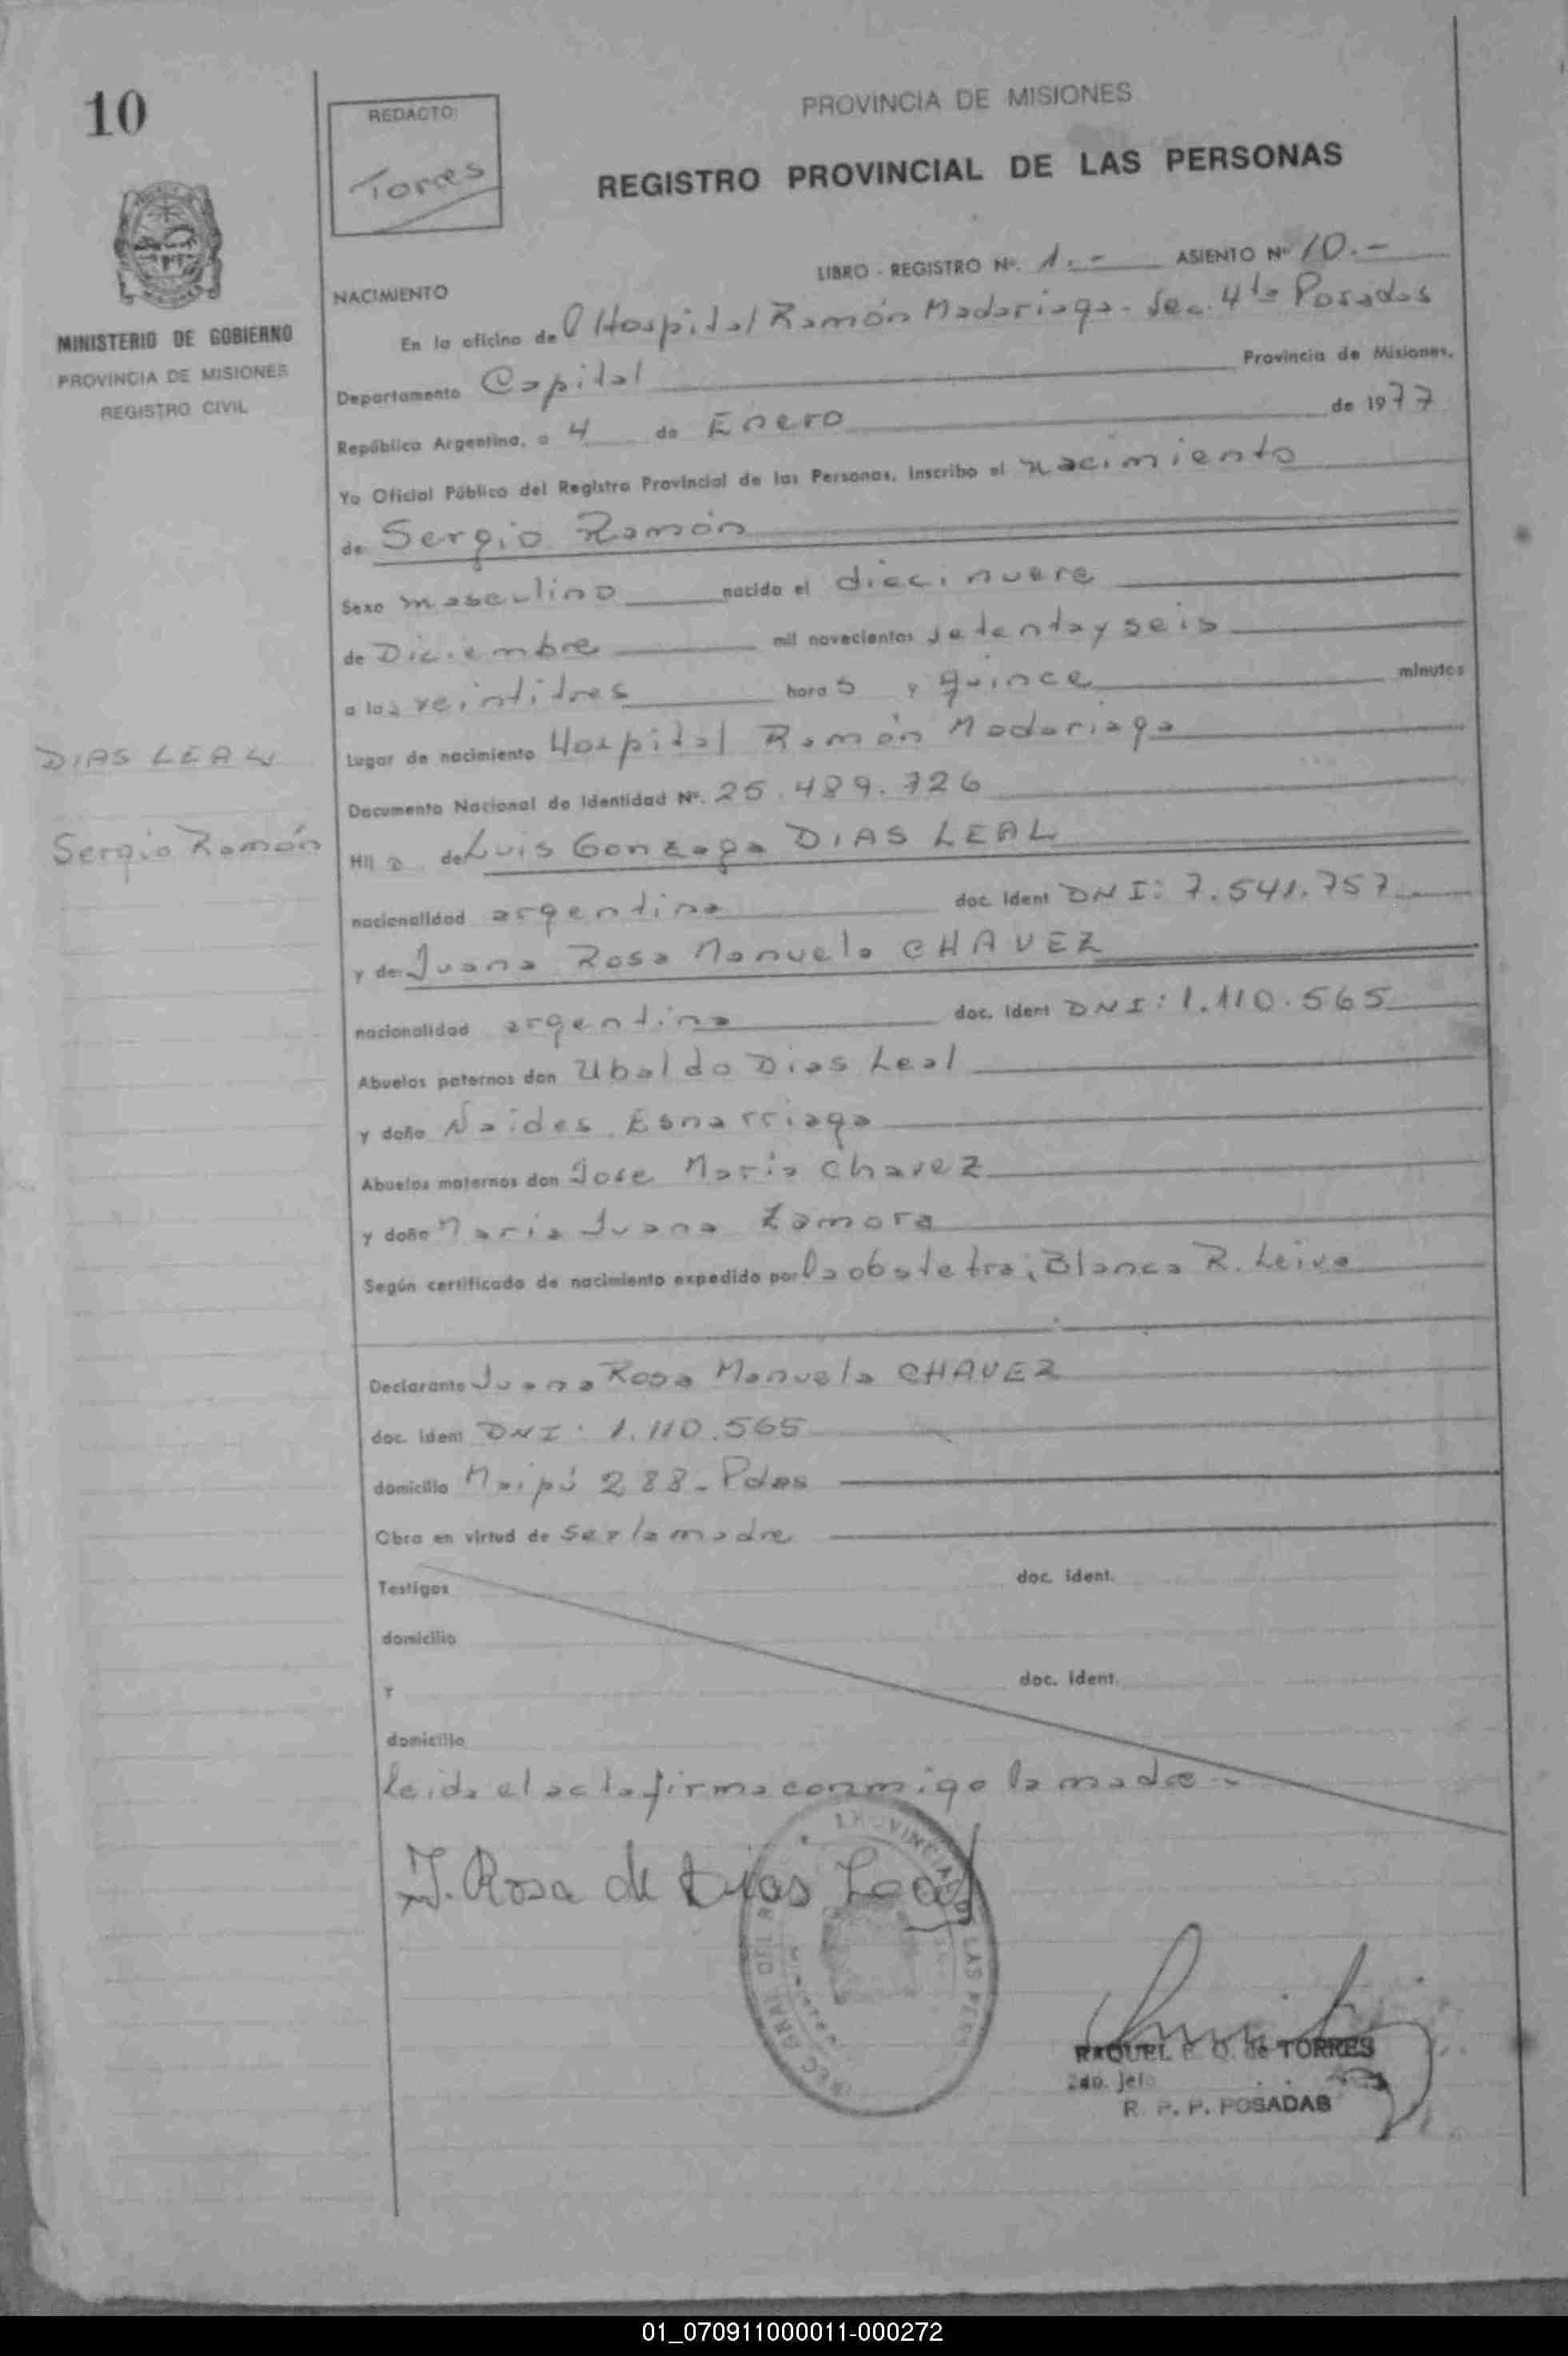 10
REDACTO:
Torres
PROVINCIA DE MISIONES
REGISTRO PROVINCIAL DE LAS PERSONAS
LIBRO - REGISTRO Nº. 1.- ASIENTO Nº 10.-
MINISTERIO DE GOBIERNO
PROVINCIA DE MISIONES
REGISTRO CIVIL
NACIMIENTO
En la oficina del Hospital Ramón Madariaga - Sec. 4ta Posadas
Departamento Capital Provincia de Misiones,
República Argentina, a 4 de Enero de 1977
Yo Oficial Público del Registro Provincial de las Personas, inscribo el nacimiento
de Sergio Ramón
Sexo masculino nacido el diecinueve
de Diciembre mil novecientos setenta y seis
a las veintitres horas y quince minutos
Lugar de nacimiento Hospital Ramón Madariaga
DIAS LEAL
Sergio Ramón
Documento Nacional de Identidad Nº. 25.489.726
Hijo de Luis Gonzaga DIAS LEAL
nacionalidad argentina doc. ident DNI: 7.541.757
y de Juana Rosa Manuela CHAVEZ
nacionalidad argentina doc. ident DNI: 1.110.565
Abuelos paternos don Ubaldo Dias Leal
y doña Naides Esnarriaga
Abuelos maternos don Jose Maria Chavez
y doña Maria Juana Zamora
Según certificado de nacimiento expedido por la obstetra; Blanca R. Leiva
Declarante Juana Rosa Manuela CHAVEZ
doc. ident DNI: 1.110.565
domicilio Maipú 288 - Pdas
Obra en virtud de ser la madre
Testigos doc. ident.
domicilio
Y doc. ident.
domicilio
Leida el acta firma conmigo la madre -
J. Rosa de Dias Leal
RAQUEL E. O. de TORRES
2do. Jefe
R. P. P. POSADAS
01_070911000011-000272